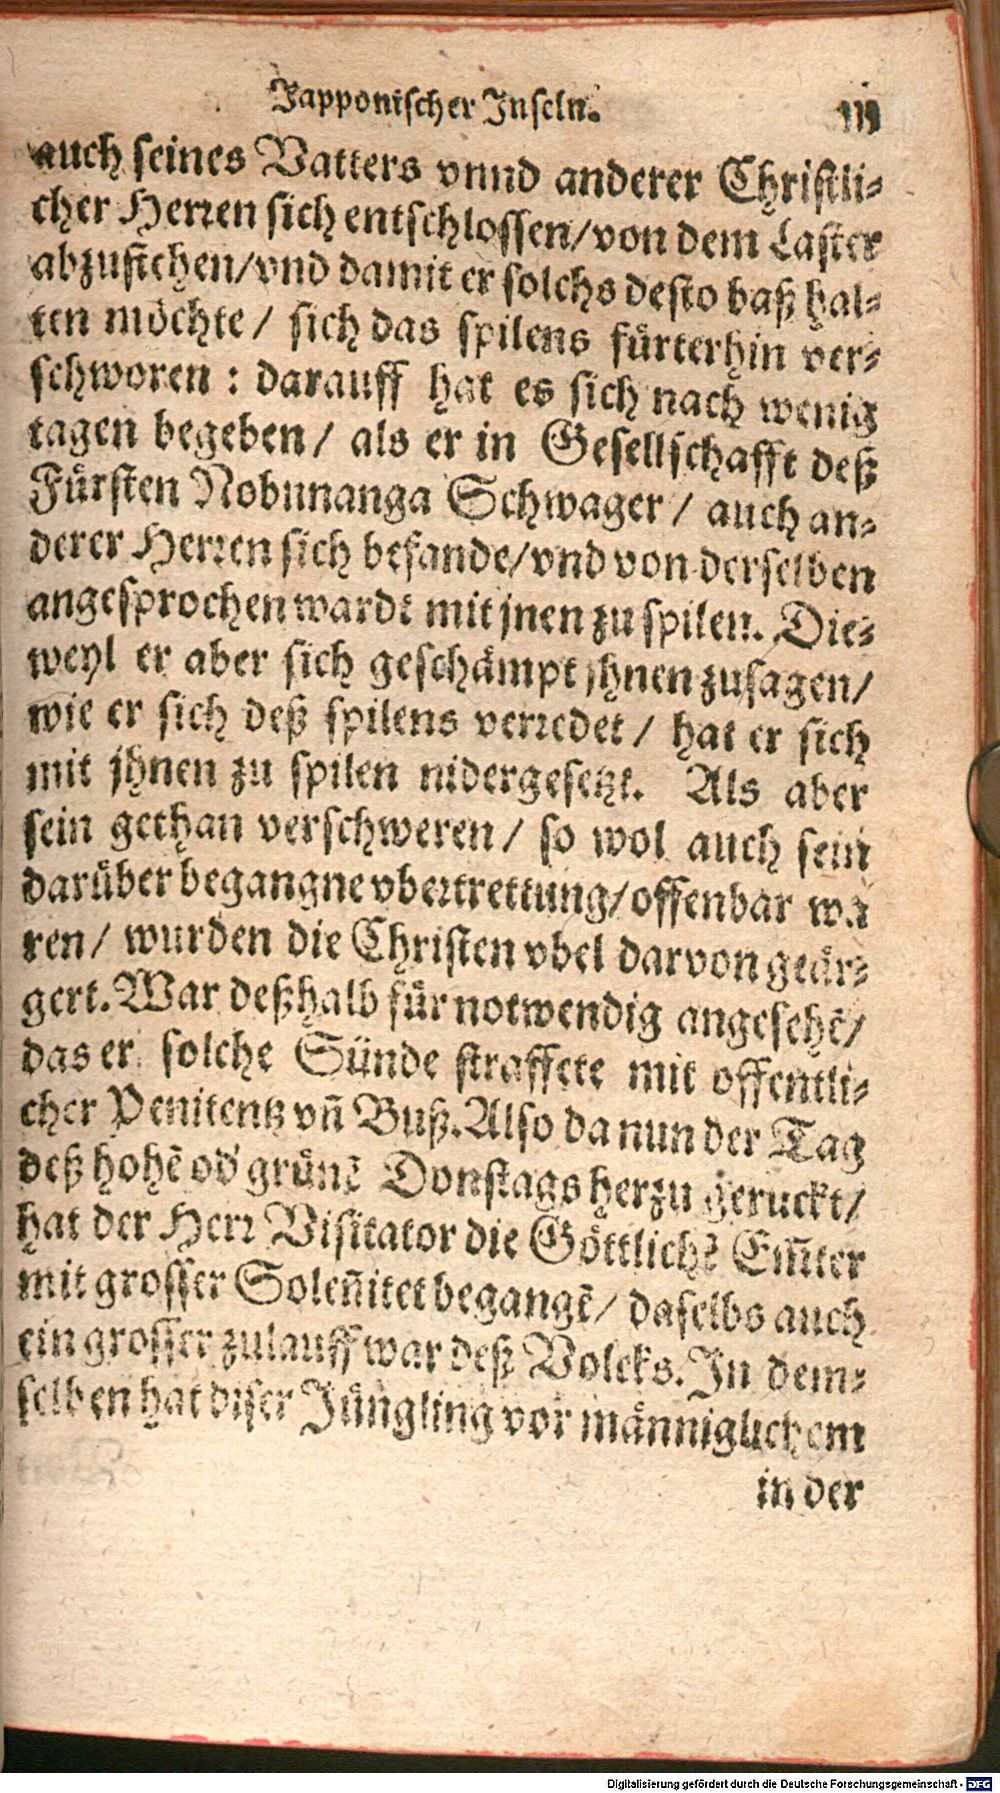 Japponischer Inseln. 111
auch seines Vatters vnnd anderer Christli⸗
cher Herꝛen sich entschlossen/ von dem Laster
abzustehen/ vnd damit er solchs desto baß hal⸗
ten möchte/ sich das spilens fürterhin ver⸗
schworen: darauff hat es sich nach wenig
tagen begeben/ als er in Gesellschafft deß
Fürsten Nobunanga Schwager/ auch an⸗
derer Herꝛen sich befande/ vnd von derselben
angesprochen wardt mit jnen zu spilen. Die⸗
weyl er aber sich geschämpt jhnen zusagen/
wie er sich deß spilens verꝛedet/ hat er sich
mit jhnen zu spilen nidergesetzt. Als aber
sein gethan verschweren/ so wol auch sein
darüber begangne vbertrettung/ offenbar wa
ren/ wurden die Christen vbel darvon geär⸗
gert. War deßhalb für notwendig angesehē/
das er solche Sünde straffete mit offentli⸗
cher Penitentz vñ Buß. Also da nun der Tag
deß hohē od' grünē Donstags herzu geruckt/
hat der Herꝛ Visitator die Göttlichē Em̃ter
mit grosser Soleñitet begangē/ daselbs auch
ein grosser zulauff war deß Volcks. In dem⸗
selben hat diser Jüngling vor männiglichem
in der
Digitalisierung gefördert durch die Deutsche Forschungsgemeinschaft - DFG